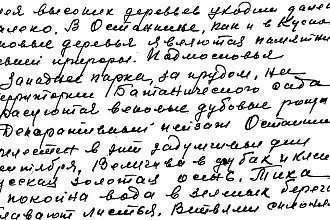 ея высоких деревьев уходит дале
алеко. В Останкине, как и в Кусков
ковые деревья являются памятни
ией природы. Подмосковья
Западнее парка, за прудом, на
территории Ботанического сада
красуются вековые дубовые рощи
Декоративный пейзаж Останки
елестен в эти задумчивые дни
ентября. Величаво в дубах и клен
усская золотая осень. Тиха
покойна вода в зеленых берега
лавают листья. Ветвями склони